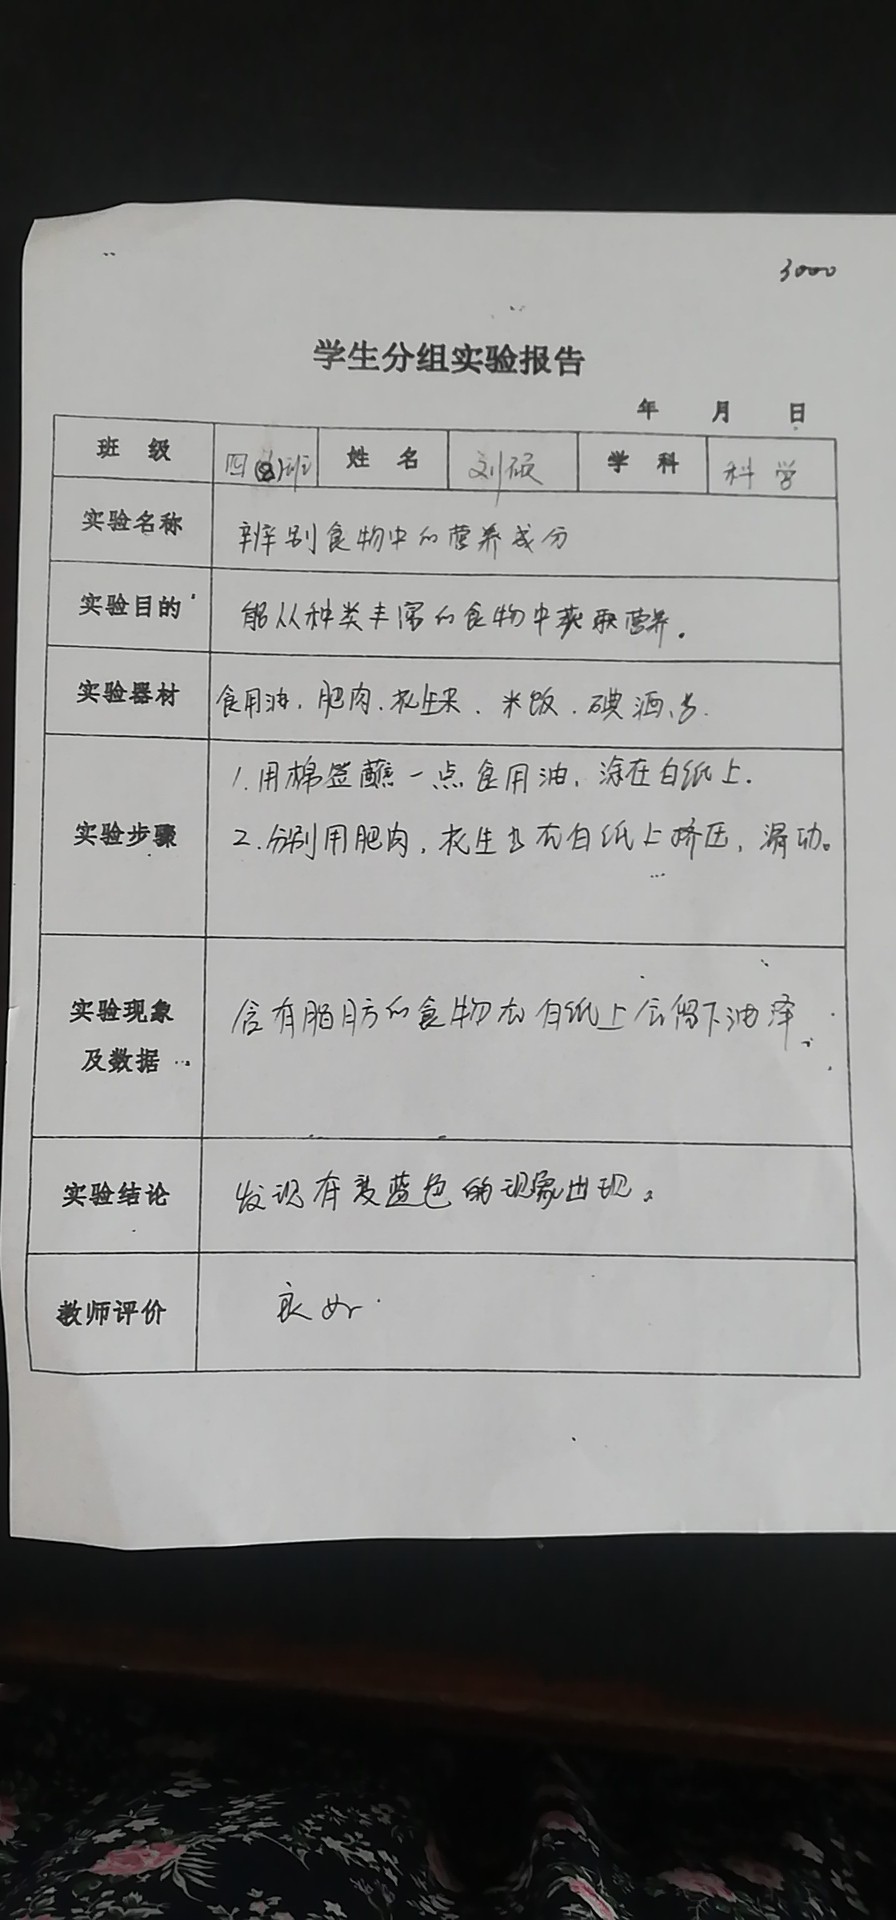 3000
学生分组实验报告
年 月 日
班 级 四()班 姓 名 刘硕 学 科 科学
实验名称 辨别食物中的营养成分
实验目的 能从种类丰富的食物中获取营养。
实验器材 食用油、肥肉、花生米、米饭、碘酒、
实验步骤 1.用棉签蘸一点食用油,涂在白纸上.
2.分别用肥肉,花生 在白纸上挤压,滑动。
实验现象 含有脂肪的食物在白纸上会留下油泽
及数据
实验结论 发现有变蓝色的现象出现。
教师评价 良好.